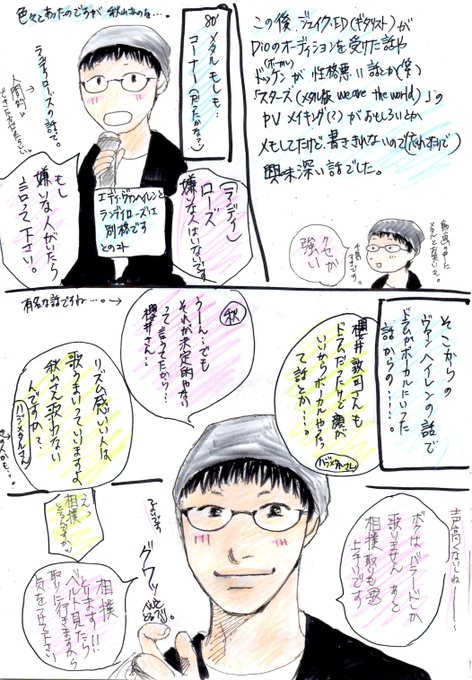 この後、ジェイク・E・Dリ(ギタリスト)が
Dioのオーディションを受けた話や
ドッケン(ボーカル)が性格悪い話とか(笑)
「スターズ(メタル版 we are the world)」の
PVメイキング(?)がおもしろいとか
メモしてたけど書ききれないので
興味深い話でした。
クセが
強い
色々とあったのですが
80'
メタルもしも…
コーナー
ランディローズの話で。
(ランディ)
ローズ
嫌いな人はいないです
もし
嫌いな人がいたら
言って下さい。
エディ・ヴァンヘイレンと
ランディローズは
別格です
とのコト
そこからの
ヴァンヘイレンの話で
ドラムがボーカルにいった
話からの……
櫻井敦司さんも
ドラムだったけど顔が
いいからボーカルやったら
て話しが…。
有名な話ですね…。→
秋
うーん…でも
それが決定的やない
って言ってたから…
櫻井さん…
リズム感いい人は
歌うまいっていいますよ
秋山さん歌わない
んですか?
声高くないしねー
ボクはバラードしか
歌りません あと
相撲取りも
上手いです
えっ
相撲
とるんですか
グワッ
相撲
とります!!
ベルト見たら
取りに行きますから
気をつけて下さい